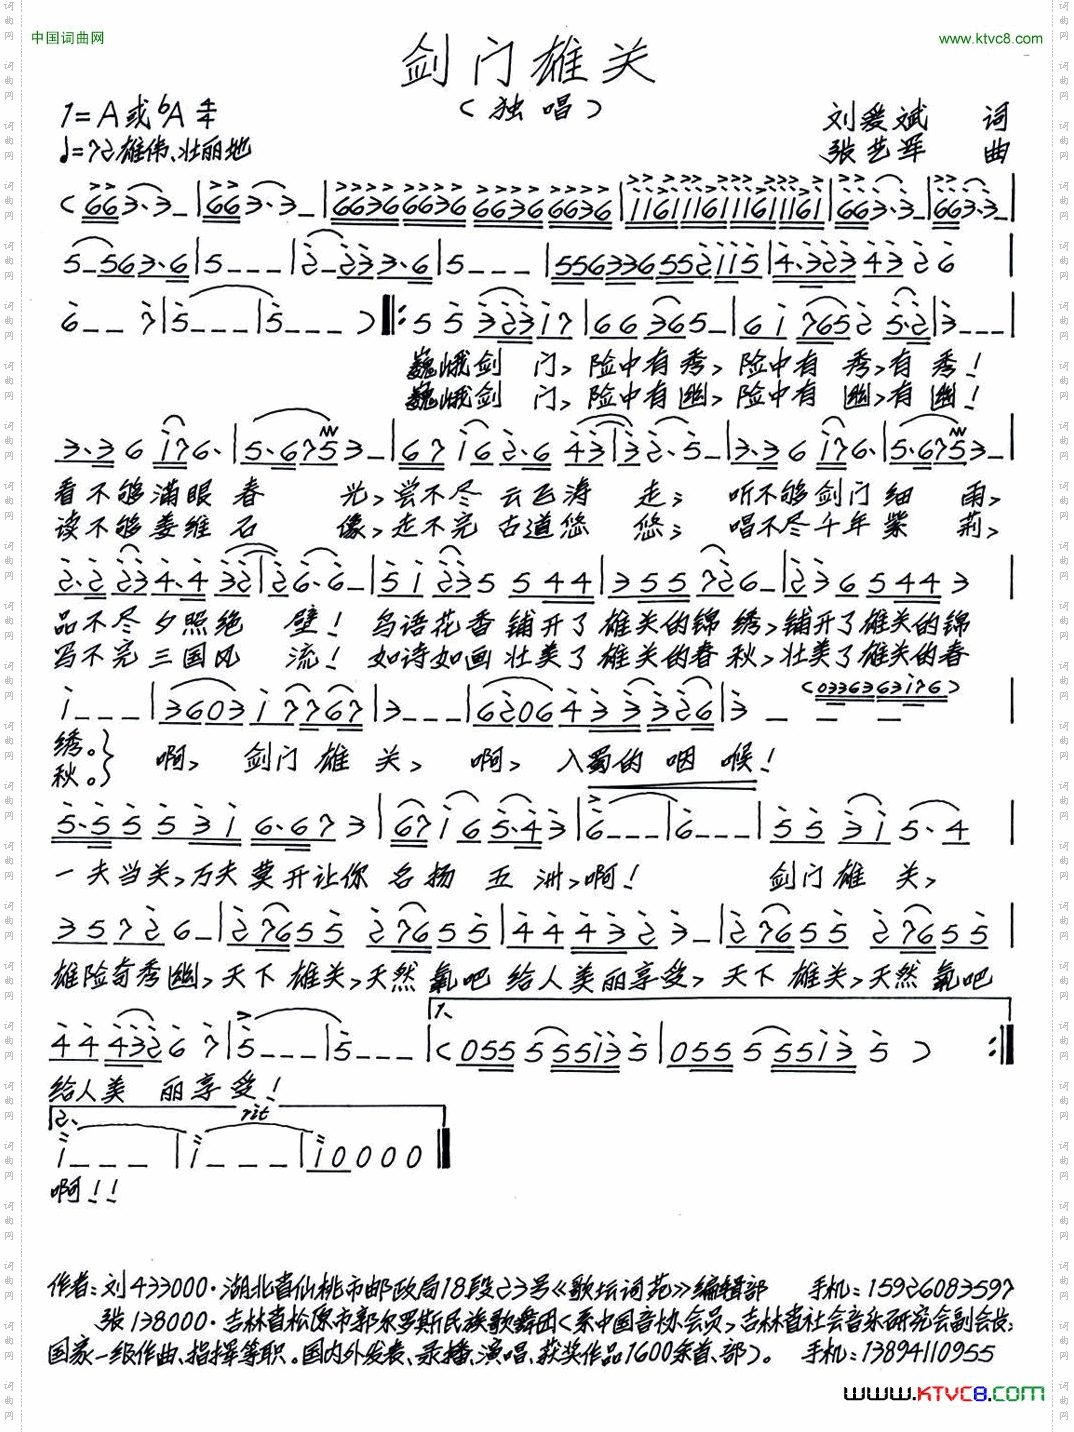 中国词曲网
www.ktvc8.com
剑门雄关
(独唱)
1=A或bA 4/4
♩=72 雄伟、壮丽地
刘爱斌 词
张艺军 曲
巍峨剑门,险中有秀,险中有秀,有秀!
巍峨剑门,险中有幽,险中有幽,有幽!
看不够满眼春光,尝不尽云飞涛走;听不够剑门细雨,
读不够姜维石像,走不完古道悠悠;唱不尽千年紫荆,
品不尽夕照绝壁!鸟语花香铺开了雄关的锦绣,铺开了雄关的锦
写不完三国风流!如诗如画壮美了雄关的春秋,壮美了雄关的春
绣。}
秋。}
啊,剑门雄关,啊,入蜀的咽喉!
一夫当关,万夫莫开让你名扬五洲,啊!剑门雄关,
雄险奇秀幽,天下雄关,天然氧吧给人美丽享受,天下雄关,天然氧吧
1.
给人美丽享受!
2.
rit
啊!!
作者:刘433000·湖北省仙桃市邮政局18段23号《歌坛词苑》编辑部 手机:15926083597
张138000·吉林省松原市郭尔罗斯民族歌舞团(系中国音协会员,吉林省社会音乐研究会副会长;
国家一级作曲、指挥等职。国内外发表、录播、演唱、获奖作品1600余首、部)。 手机:13894110955
www.KTVC8.COM